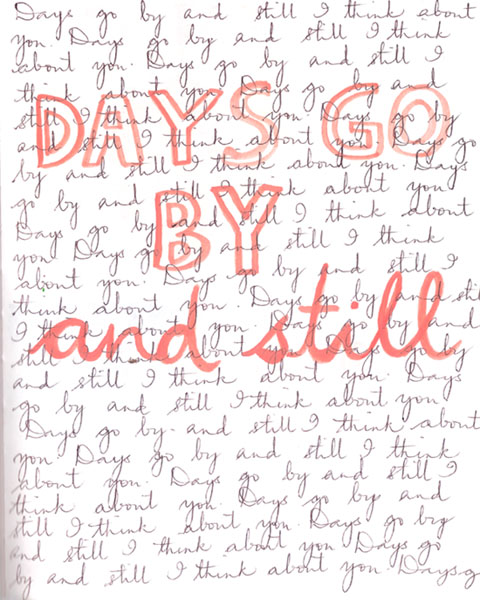 Days go by and still I think about
you. Days go by and still I think
about you. Days go by and still I
think about you. Days go by and
still I think about you. Days go by
and still I think about you. Days go
by and still I think about you. Days
go by and still I think about you
Days go by and still I think about
you Days go by and still I think
about you. Days go by and still I
think about you. Days go by and stil
I think about you. Days go by and
still I think about you. Days go by
and still I think about you. Days
go by and still I think about you
Days go by and still I think about
you. Days go by and still I think
about you. Days go by and still I
think about you. Days go by and
still I think about you. Days go by
and still I think about you. Days go
by and still I think about you. Days g
DAYS GO
BY
and still